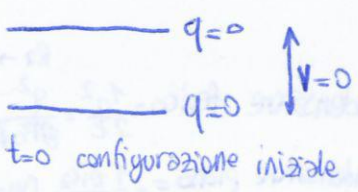 q=0
V=0
q=0
t=0 configurazione iniziale